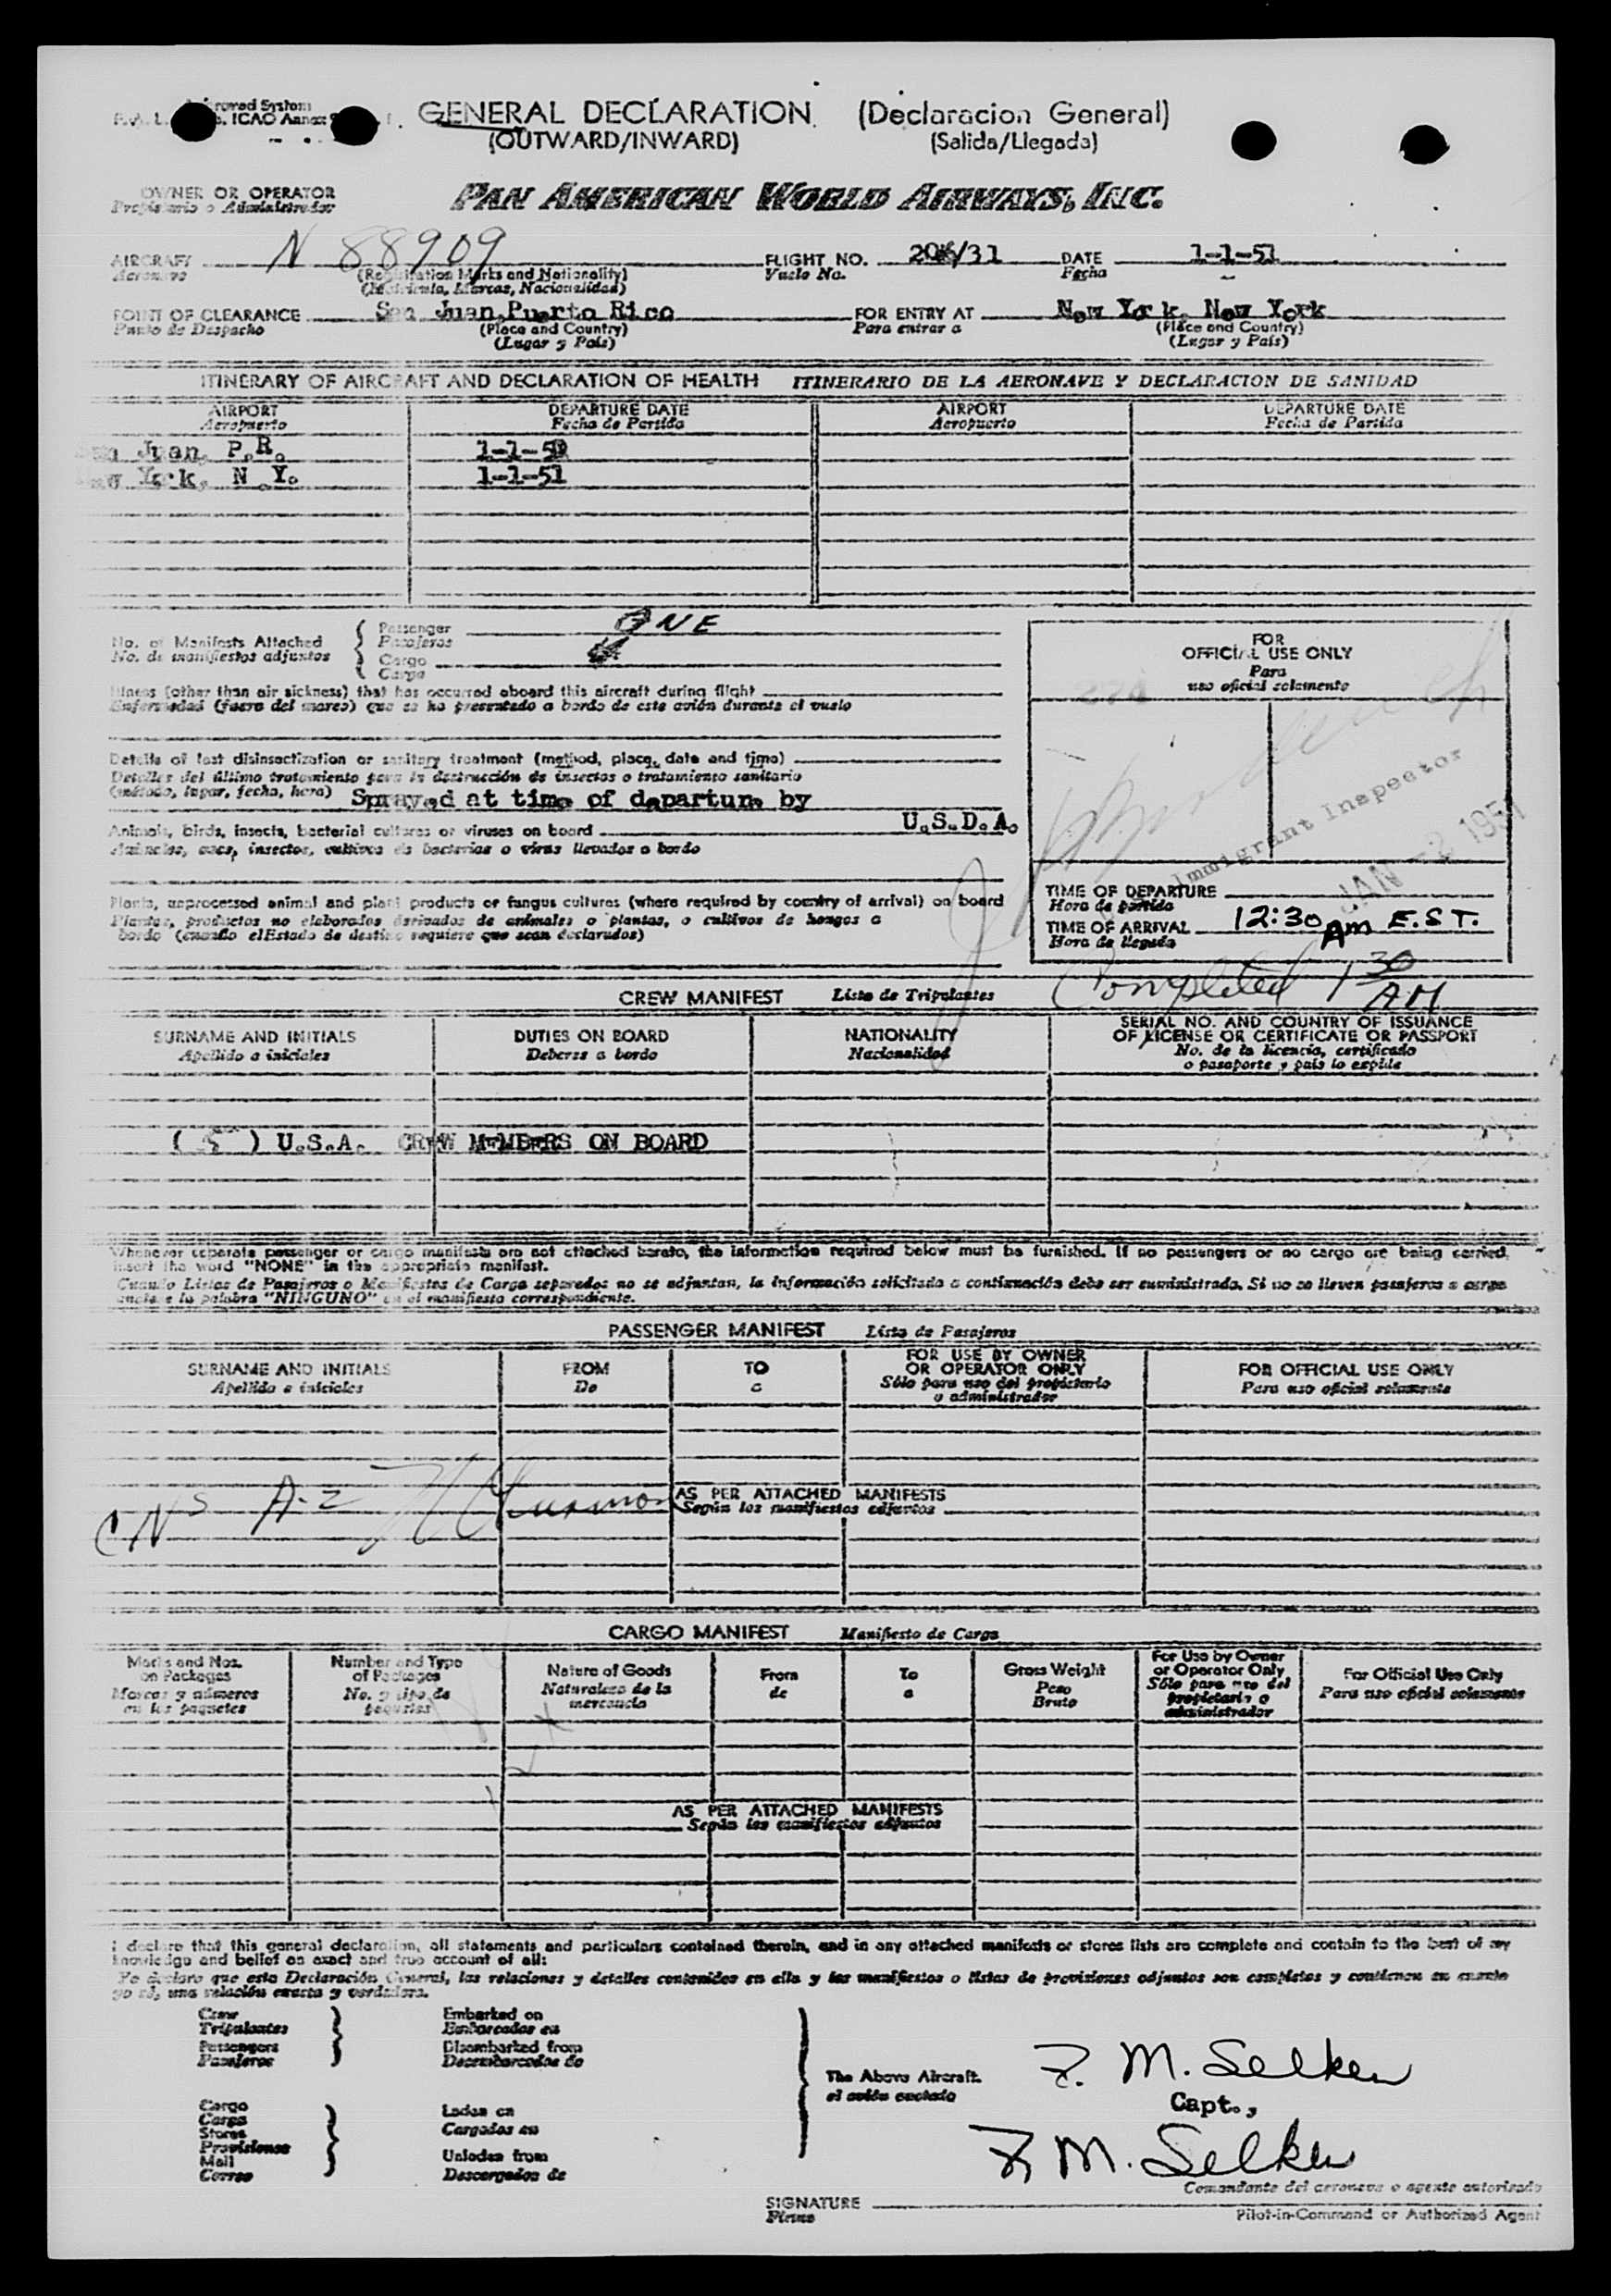 GENERAL DECLARATION. (Declaracion General)
(OUTWARD/INWARD) (Salida/Llegada)
OWNER OR OPERATOR
Propietario o Administrador
PAN AMERICAN WORLD AIRWAYS, INC.
AIRCRAFT N 88909 FLIGHT NO. /31 DATE 1-1-51
Aeronave (Registration Marks and Nationality) Vuelo No. Fecha
(Matricula, Marcas, Nacionalidad)
POINT OF CLEARANCE San Juan, Puerto Rico FOR ENTRY AT New York, New York
Punto de Despacho (Place and Country) Para entrar a (Place and Country)
(Lugar y País) (Lugar y País)
ITINERARY OF AIRCRAFT AND DECLARATION OF HEALTH ITINERARIO DE LA AERONAVE Y DECLARACION DE SANIDAD
AIRPORT DEPARTURE DATE AIRPORT DEPARTURE DATE
Aeropuerto Fecha de Partida Aeropuerto Fecha de Partida
Juan, P.R. 1-1-51
York, N.Y. 1-1-51
No. of Manifests Attached Passenger ONE
No. de manifiestos adjuntos Pasajeros
Cargo
Carga
Illness (other than air sickness) that has occurred aboard this aircraft during flight
Enfermedad (fuera del mareo) que se ha presentado a bordo de este avión durante el vuelo
Details of last disinsectization or sanitary treatment (method, place, date and time)
Detalles del último tratamiento para la destrucción de insectos o tratamiento sanitario
(método, lugar, fecha, hora) Sprayed at time of departure by
U.S.D.A.
Animals, birds, insects, bacterial cultures or viruses on board
Animales, aves, insectos, cultivos de bacterias o virus llevados a bordo
Plants, unprocessed animal and plant products or fungus cultures (where required by country of arrival) on board
Plantas, productos no elaborados derivados de animales o plantas, o cultivos de hongos a
bordo (cuando el Estado de destino requiere que sean declarados)
FOR
OFFICIAL USE ONLY
Para
uso oficial solamente
Immigrant Inspector
JAN -2 1951
TIME OF DEPARTURE
Hora de partida
TIME OF ARRIVAL 12:30 AM E.S.T.
Hora de llegada
Completed 1 30 AM
CREW MANIFEST Lista de Tripulantes
SURNAME AND INITIALS DUTIES ON BOARD NATIONALITY SERIAL NO. AND COUNTRY OF ISSUANCE
OF LICENSE OR CERTIFICATE OR PASSPORT
Apellido o iniciales Deberes a bordo Nacionalidad No. de la licencia, certificado
o pasaporte y país lo expide
( 5 ) U.S.A. CREW MEMBERS ON BOARD
Whenever separate passenger or cargo manifests are not attached hereto, the information required below must be furnished. If no passengers or no cargo are being carried,
insert the word "NONE" in the appropriate manifest.
Cuando Listas de Pasajeros o Manifiestos de Carga separados no se adjuntan, la información solicitada a continuación debe ser suministrada. Si no se lleven pasajeros o carga
anote la palabra "NINGUNO" en el manifiesto correspondiente.
PASSENGER MANIFEST Lista de Pasajeros
SURNAME AND INITIALS FROM TO FOR USE BY OWNER
OR OPERATOR ONLY FOR OFFICIAL USE ONLY
Apellido e iniciales De a Sólo para uso del propietario
o administrador Para uso oficial solamente
A-Z
AS PER ATTACHED MANIFESTS
Según los manifiestos adjuntos
CARGO MANIFEST Manifiesto de Carga
Marks and Nos.
on Packages
Marcas y números
en los paquetes
Number and Type
of Packages
No. y tipo de
paquetes
Nature of Goods
Naturaleza de la
mercancía
From
de
To
a
Gross Weight
Peso
Bruto
For Use by Owner
or Operator Only
Sólo para uso del
propietario o
administrador
For Official Use Only
Para uso oficial solamente
AS PER ATTACHED MANIFESTS
Según los manifiestos adjuntos
I declare that this general declaration, all statements and particulars contained therein, and in any attached manifests or stores lists are complete and contain to the best of my
knowledge and belief an exact and true account of all:
Yo declaro que esta Declaración General, las relaciones y detalles contenidos en ella y los manifiestos o listas de provisiones adjuntos son completos y contienen en cuanto
yo sé, una relación exacta y verdadera.
Crew Embarked on
Tripulantes Embarcados en
Passengers Disembarked from
Pasajeros Desembarcados de
The Above Aircraft.
el avión anotado
Cargo
Carga
Stores
Provisiones
Mail
Correo
Laden on
Cargados en
Unladen from
Descargados de
F. M. Selken
Capt.,
F. M. Selken
Comandante del aeronave o agente autorizado
SIGNATURE
Firma
Pilot-in-Command or Authorized Agent